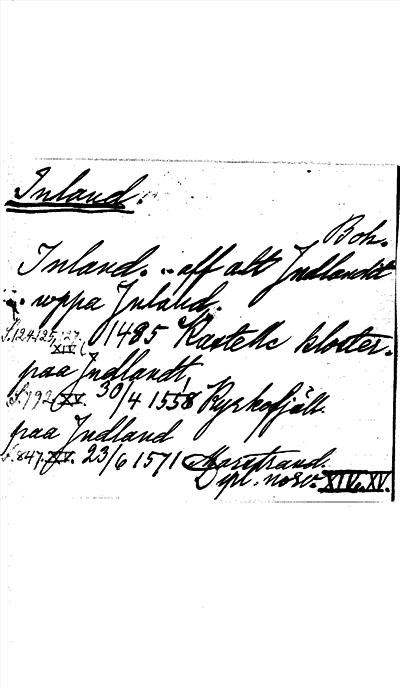 Inland.
Boh.
Inland. .. aff alt Indlandit
.. uppa Inland.
S. 124, 125, 127. XIV. 1485 Kastelle kloster.
paa Indlandt,
S. 792, XV. 30/4 1558 Kyrkefjäll.
paa Indland
S. 847, XV. 23/6 1571 Marstrand.
Dipl. norv. XIV. XV.